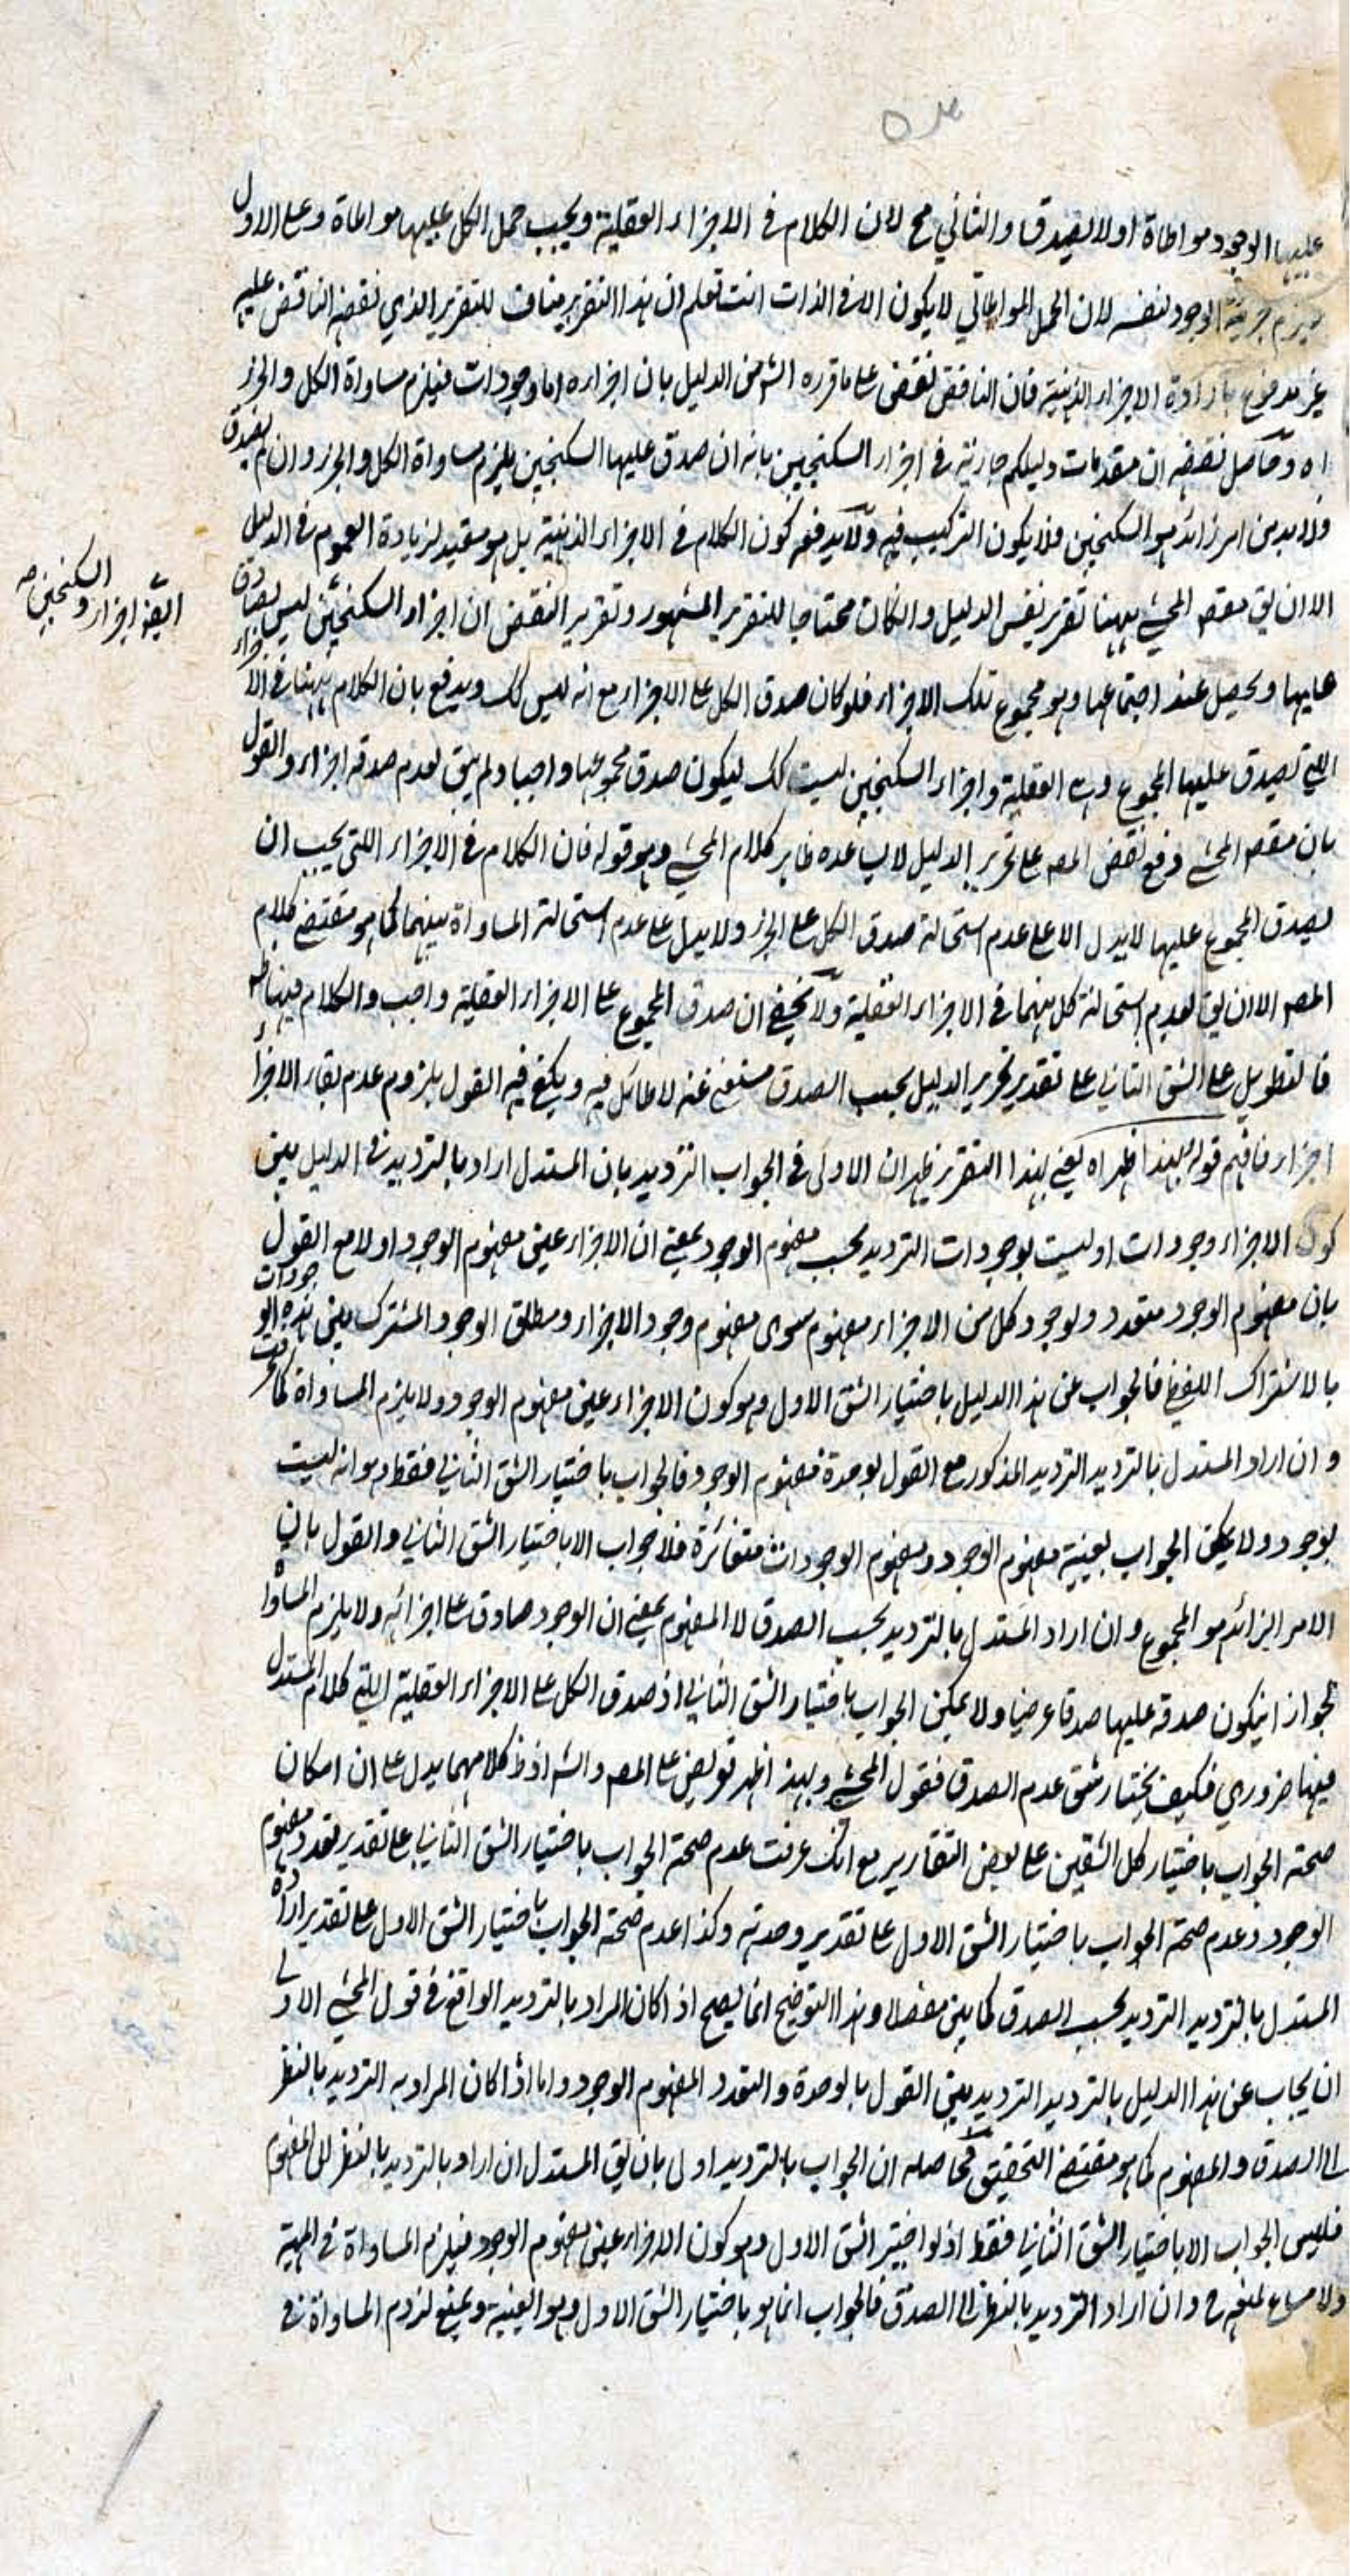 عليها الوجود مواطاة اولا يصدق والثاني مح لان الكلام في الاجزاء العقلية ويجب حمل الكل عليها مواطاة وعلى الاول
يلزم جزئية الوجود لنفسه لان الحمل المواطاتي لا يكون الا في الذات انت تعلم ان هذا التقرير مناف للتقرير الذي نقضه الناقض عليه
غير مدفوع بارادة الاجزاء الذهنية فان الناقض نقض على ما قرره الش من الدليل بان اجزاءه اما وجودات فيلزم مساواة الكل والجزء
اه وحاصل نقضه ان مقدمات دليلكم جارية في اجزاء السكنجبين بانه ان صدق عليها السكنجبين يلزم مساواة الكل والجزء وان لم يصدق
ولابد من امر زائد هو السكنجبين فلا يكون التركيب فيه ولا يدفعه كون الكلام في الاجزاء الذهنية بل هو مفيد لزيادة العموم في الدليل
الا ان يق مقص المحشي ههنا تقرير نفس الدليل والكان محتاجا للتقرير المشهور وتقرير النقض ان اجزاء السكنجبين ليس بصادق
عليها ويحصل عند اجتماعها وهو مجموع تلك الاجزاء فلو كان صدق الكل على الاجزاء مع انه ليس كك ويدفع بان الكلام ههنا في الاجزاء
اللتي يصدق عليها المجموع وهي العقلية واجزاء السكنجبين ليست كك ليكون صدق مجموعها واجبا ولم يبق لعدم صدقه اجزاء والقول
بان مقص المحشي دفع نقض المص على تحرير الدليل لا يساعده ظاهر كلام المحشي وهو قوله فان الكلام في الاجزاء اللتي يجب ان
يصدق المجموع عليها لا يدل الا على عدم استحالة صدق الكل على الجزء ولا يدل على عدم استحالة المساواة بينهما كما هو مقتضى كلام
المص الا ان يق لعدم استحالة كل منهما في الاجزاء العقلية ولا يخفى ان صدق المجموع على الاجزاء العقلية واجب والكلام فيها
فالتطويل على الشق الثاني على تقدير تحرير الدليل بحسب الصدق مستغنى عنه لا طائل فيه ويكتفى فيه القول بلزوم عدم بقاء الاجزاء
اجزاء فافهم قوله بهذا ظهر اه يعني بهذا التقرير ظهر ان الاولى في الجواب الترديد بان المستدل اراد بالترديد في الدليل بين
كون الاجزاء وجودات او ليست بوجودات الترديد بحسب مفهوم الوجود بمعنى ان الاجزاء عين مفهوم الوجود اولا مع القول
بان مفهوم الوجود متعدد ولوجود كل من الاجزاء مفهوم سوى مفهوم وجود الاجزاء ومطلق الوجود المشترك بين هذه الوجودات
بالاشتراك اللفظي فالجواب عن هذا الدليل باختيار الشق الاول وهو كون الاجزاء عين مفهوم الوجود ولا يلزم المساواة كما عرفت
وان اراد المستدل بالترديد الترديد المذكور مع القول بوحدة مفهوم الوجود فالجواب باختيار الشق الثاني فقط وهو انه ليست
بوجود ولا يمكن الجواب بعينية مفهوم الوجود ومفهوم الوجودات متغائرة فلا جواب الا باختيار الشق الثاني والقول بان
الامر الزائد هو المجموع وان اراد المستدل بالترديد بحسب الصدق لا المفهوم بمعنى ان الوجود صادق على اجزائه ولا يلزم المساواة
لجواز ان يكون صدقه عليها صدقا عرضيا ولا يمكن الجواب باختيار الشق الثاني اذ صدق الكل على الاجزاء العقلية اللتي كلام المستدل
فيها ضروري فكيف يختار شق عدم الصدق فقول المحشي وبهذا ظهر تعريض على المص والش اذ ظ كلامهما يدل على ان امكان
صحة الجواب باختيار كل الشقين على بعض التقارير مع انك عرفت عدم صحة الجواب باختيار الشق الثاني على تقدير تعدد مفهوم
الوجود وعدم صحة الجواب باختيار الشق الاول على تقدير وحدته وكذا عدم صحة الجواب باختيار الشق الاول على تقدير ارادة
المستدل بالترديد الترديد بحسب الصدق كما بين مفصلا وهذا التوضيح انما يصح اذا كان المراد بالترديد الواقع في قول المحشي الاولى
ان يجاب عن هذا الدليل بالترديد الترديد بين القول بالوحدة والتعدد لمفهوم الوجود واما اذا كان المراد به الترديد بالنظر
الى الصدق والمفهوم كما هو مقتضى التحقيق فحاصله ان الجواب بالترديد اولى بان يق المستدل ان اراد بالترديد بالنظر الى المفهوم
فليس الجواب الا باختيار الشق الثاني فقط اذ لو اختير الشق الاول وهو كون الاجزاء عين مفهوم الوجود فيلزم المساواة في المهية
ولا مساغ لمنعه ح وان اراد الترديد بالنظر الى الصدق فالجواب انما هو باختيار الشق الاول وهو العينية ويمنع لزوم المساواة في
ايضا اجزاء والسكنجبين صح